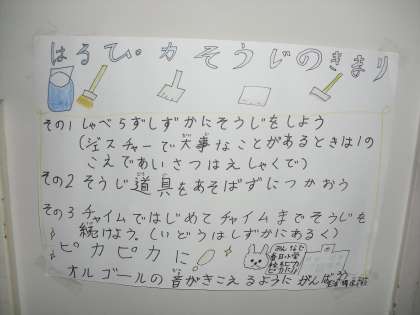 はるぴカそうじのきまり
その1 しゃべらずしずかにそうじをしよう
(ジェスチャーで大事なことがあるときは1の
こえであいさつはえしゃくで)
その2 そうじ道具をあそばずにつかおう
その3 チャイムではじめてチャイムまでそうじを
続けよう。(いどうはしずかにあるく)
ピカピカに
みんなで
春日小学
校をピカ
ピカに!!
オルゴールの音がきこえるようにがんばろう